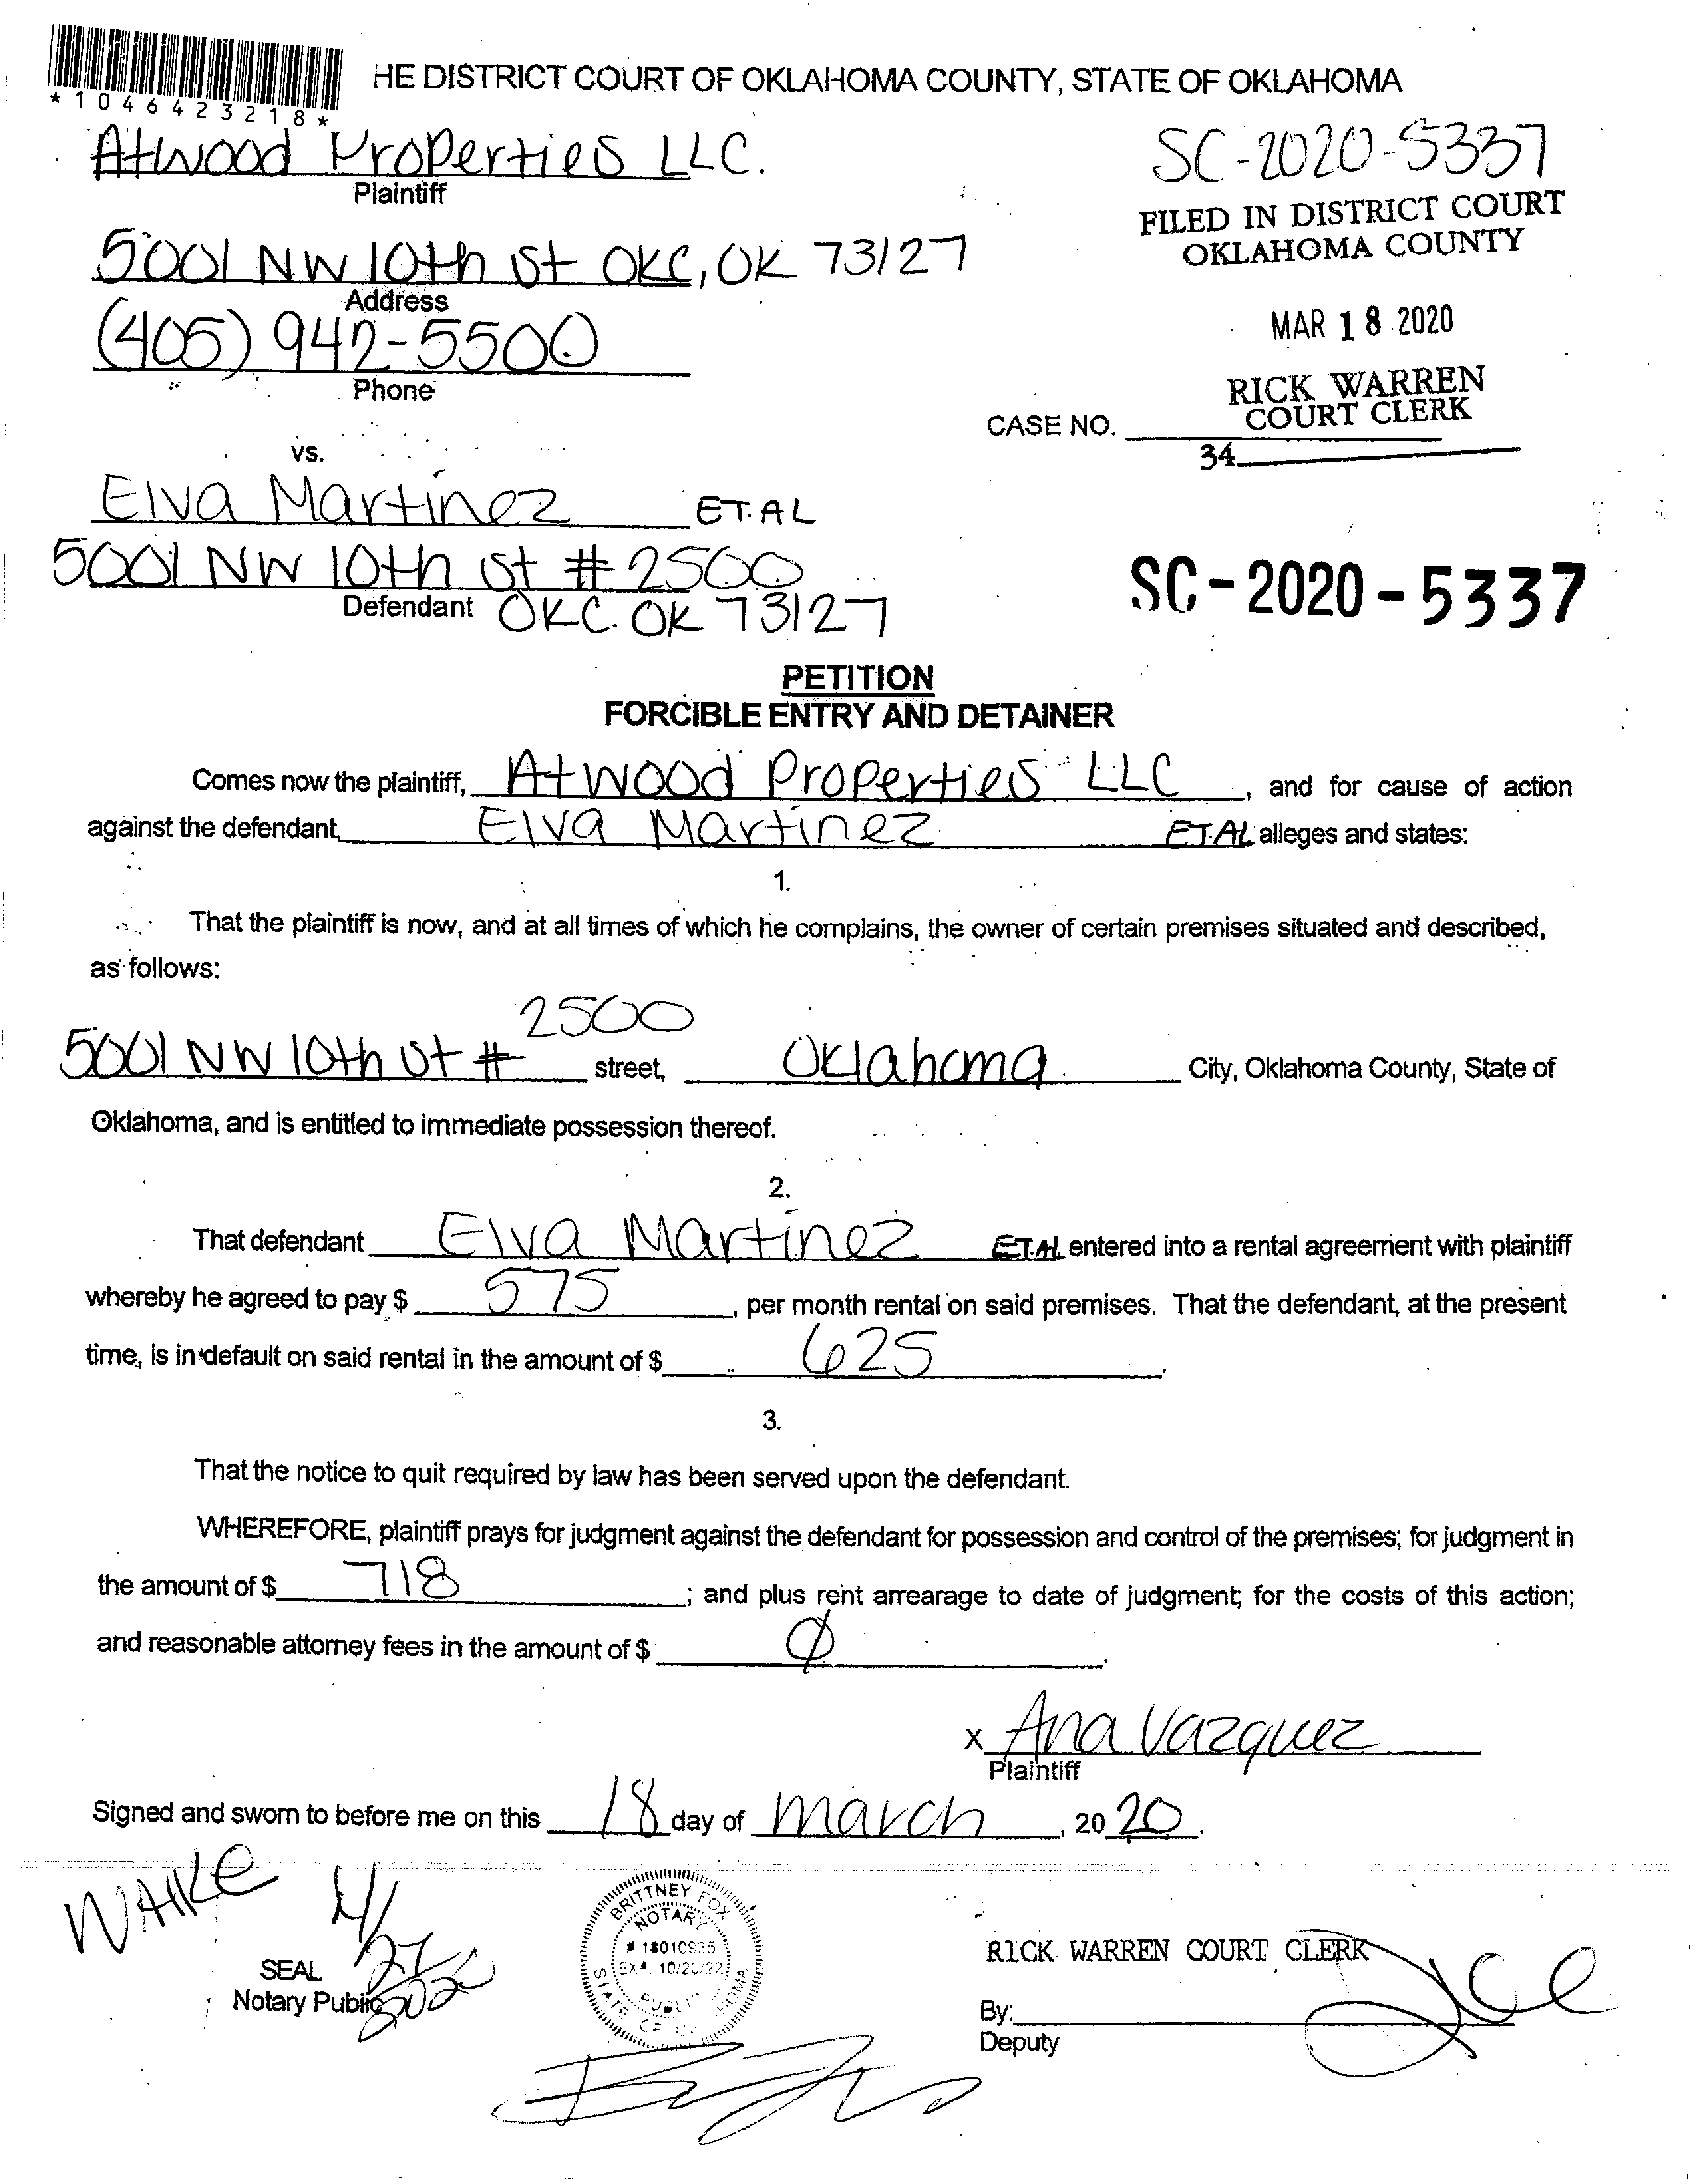 HE DISTRICT COURT OF OKLAHOMA COUNTY, STATE OF OKLAHOMA
*1046423218*
Atwood Properties LLC.
Plaintiff
SC-2020-5337
FILED IN DISTRICT COURT
OKLAHOMA COUNTY
5001 NW 10th St OKC, OK 73127
Address
MAR 18 2020
(405) 942-5500
Phone
RICK WARREN
COURT CLERK
CASE NO.
34
vs.
Elva Martinez ET.AL
5001 NW 10th St # 2500
Defendant OKC. OK 73127
SC-2020-5337
PETITION
FORCIBLE ENTRY AND DETAINER
Comes now the plaintiff, Atwood Properties LLC, and for cause of action
against the defendant, Elva Martinez ET.AL alleges and states:
1.
That the plaintiff is now, and at all times of which he complains, the owner of certain premises situated and described,
as follows:
5001 NW 10th St # 2500 street, Oklahoma City, Oklahoma County, State of
Oklahoma, and is entitled to immediate possession thereof.
2.
That defendant Elva Martinez ET.AL entered into a rental agreement with plaintiff
whereby he agreed to pay $ 575, per month rental on said premises. That the defendant, at the present
time, is in default on said rental in the amount of $ 625.
3.
That the notice to quit required by law has been served upon the defendant.
WHEREFORE, plaintiff prays for judgment against the defendant for possession and control of the premises; for judgment in
the amount of $ 718; and plus rent arrearage to date of judgment; for the costs of this action;
and reasonable attorney fees in the amount of $ Ø.
x Ana Vazquez
Plaintiff
Signed and sworn to before me on this 18 day of March, 20 20.
4/27
2020
SEAL
Notary Public
BRITTNEY FOX
NOTARY
PUBLIC
STATE OF
EXP. 10/20/22
RICK WARREN COURT CLERK
By:
Deputy